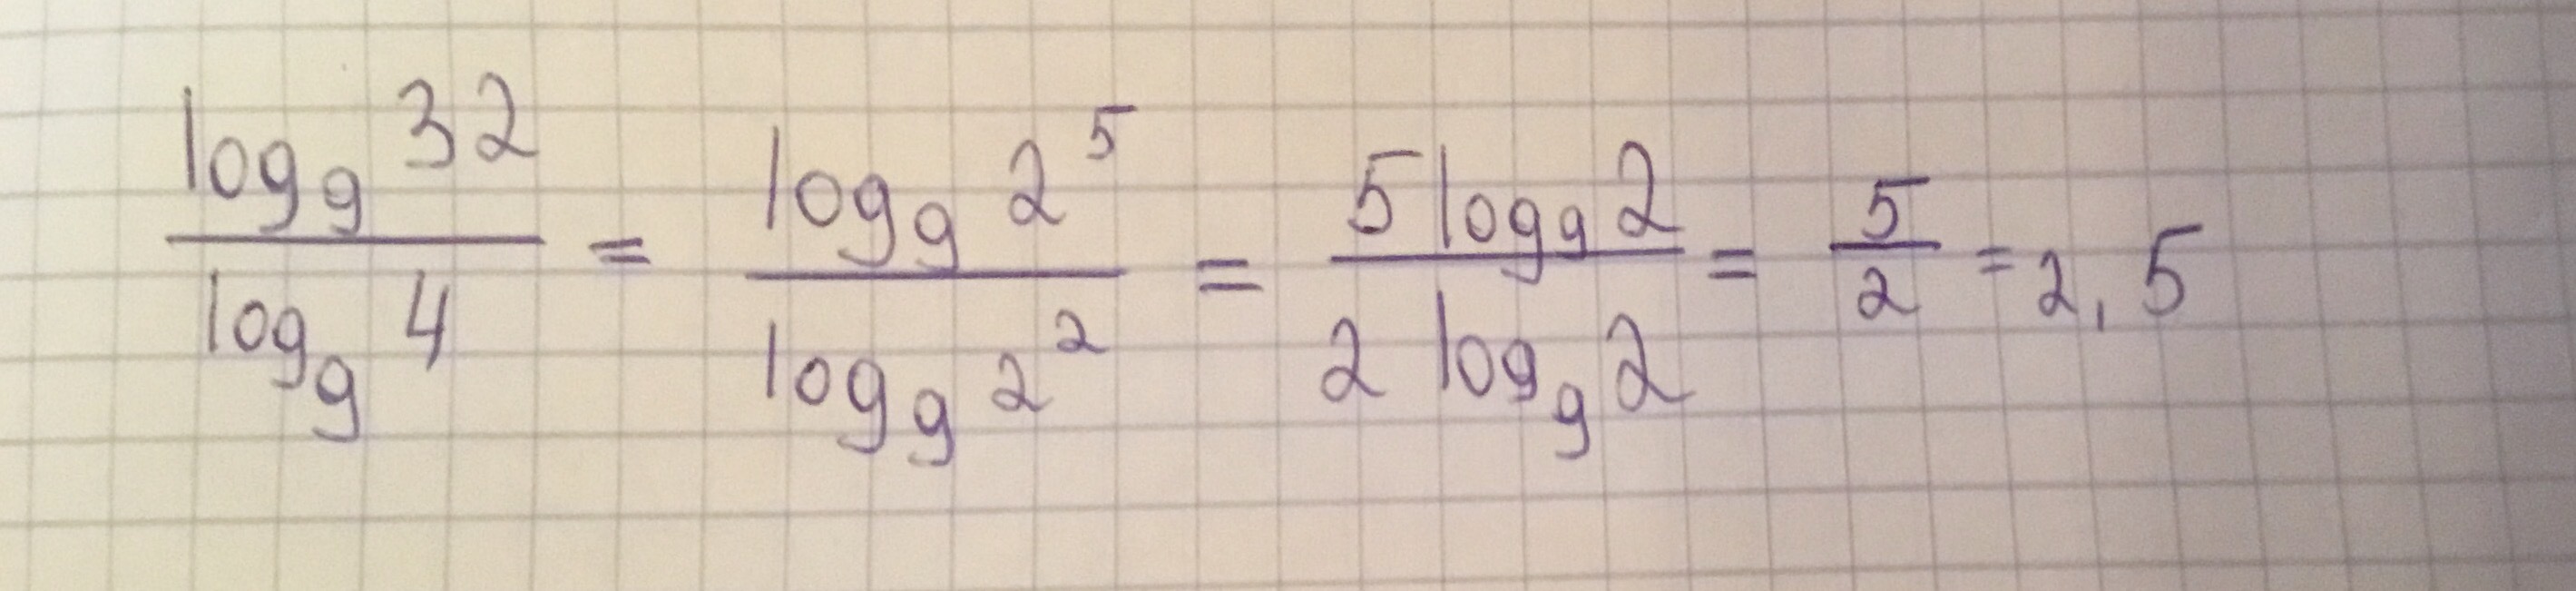 log₉ 32 / log₉ 4 = log₉ 2⁵ / log₉ 2² = 5 log₉ 2 / 2 log₉ 2 = 5/2 = 2,5